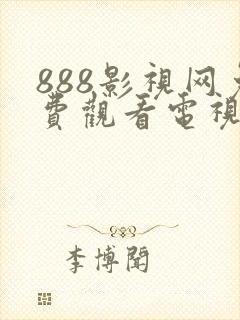 888影視网免
費觀看電視
李博聞